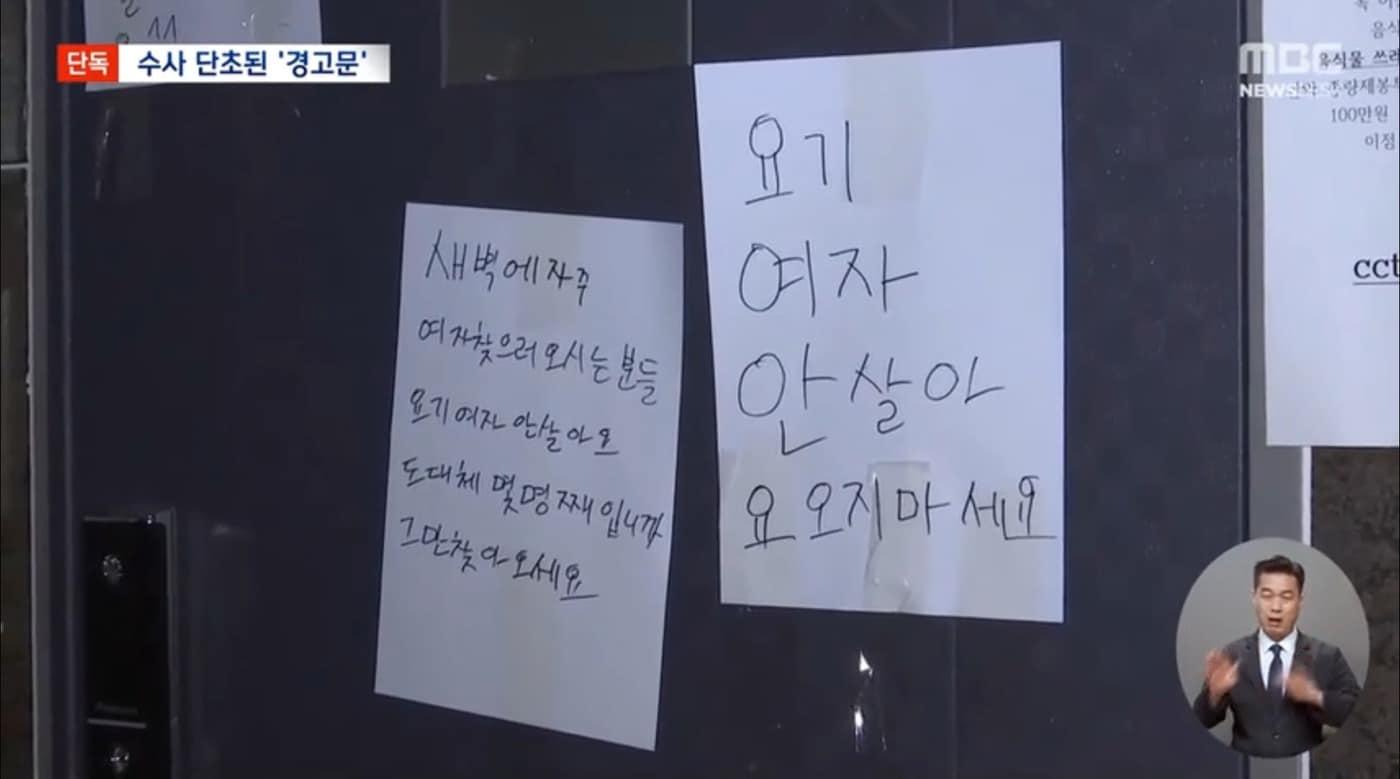 단독 수사 단초된 '경고문'
MBC
NEWS
요기
여자
안살아
요 오지마세요
새벽에자주
여자찾으러 오시는 분들
요기여자 안살아요
도대체 몇명째입니까
그만찾아오세요
100만원
이점
cct